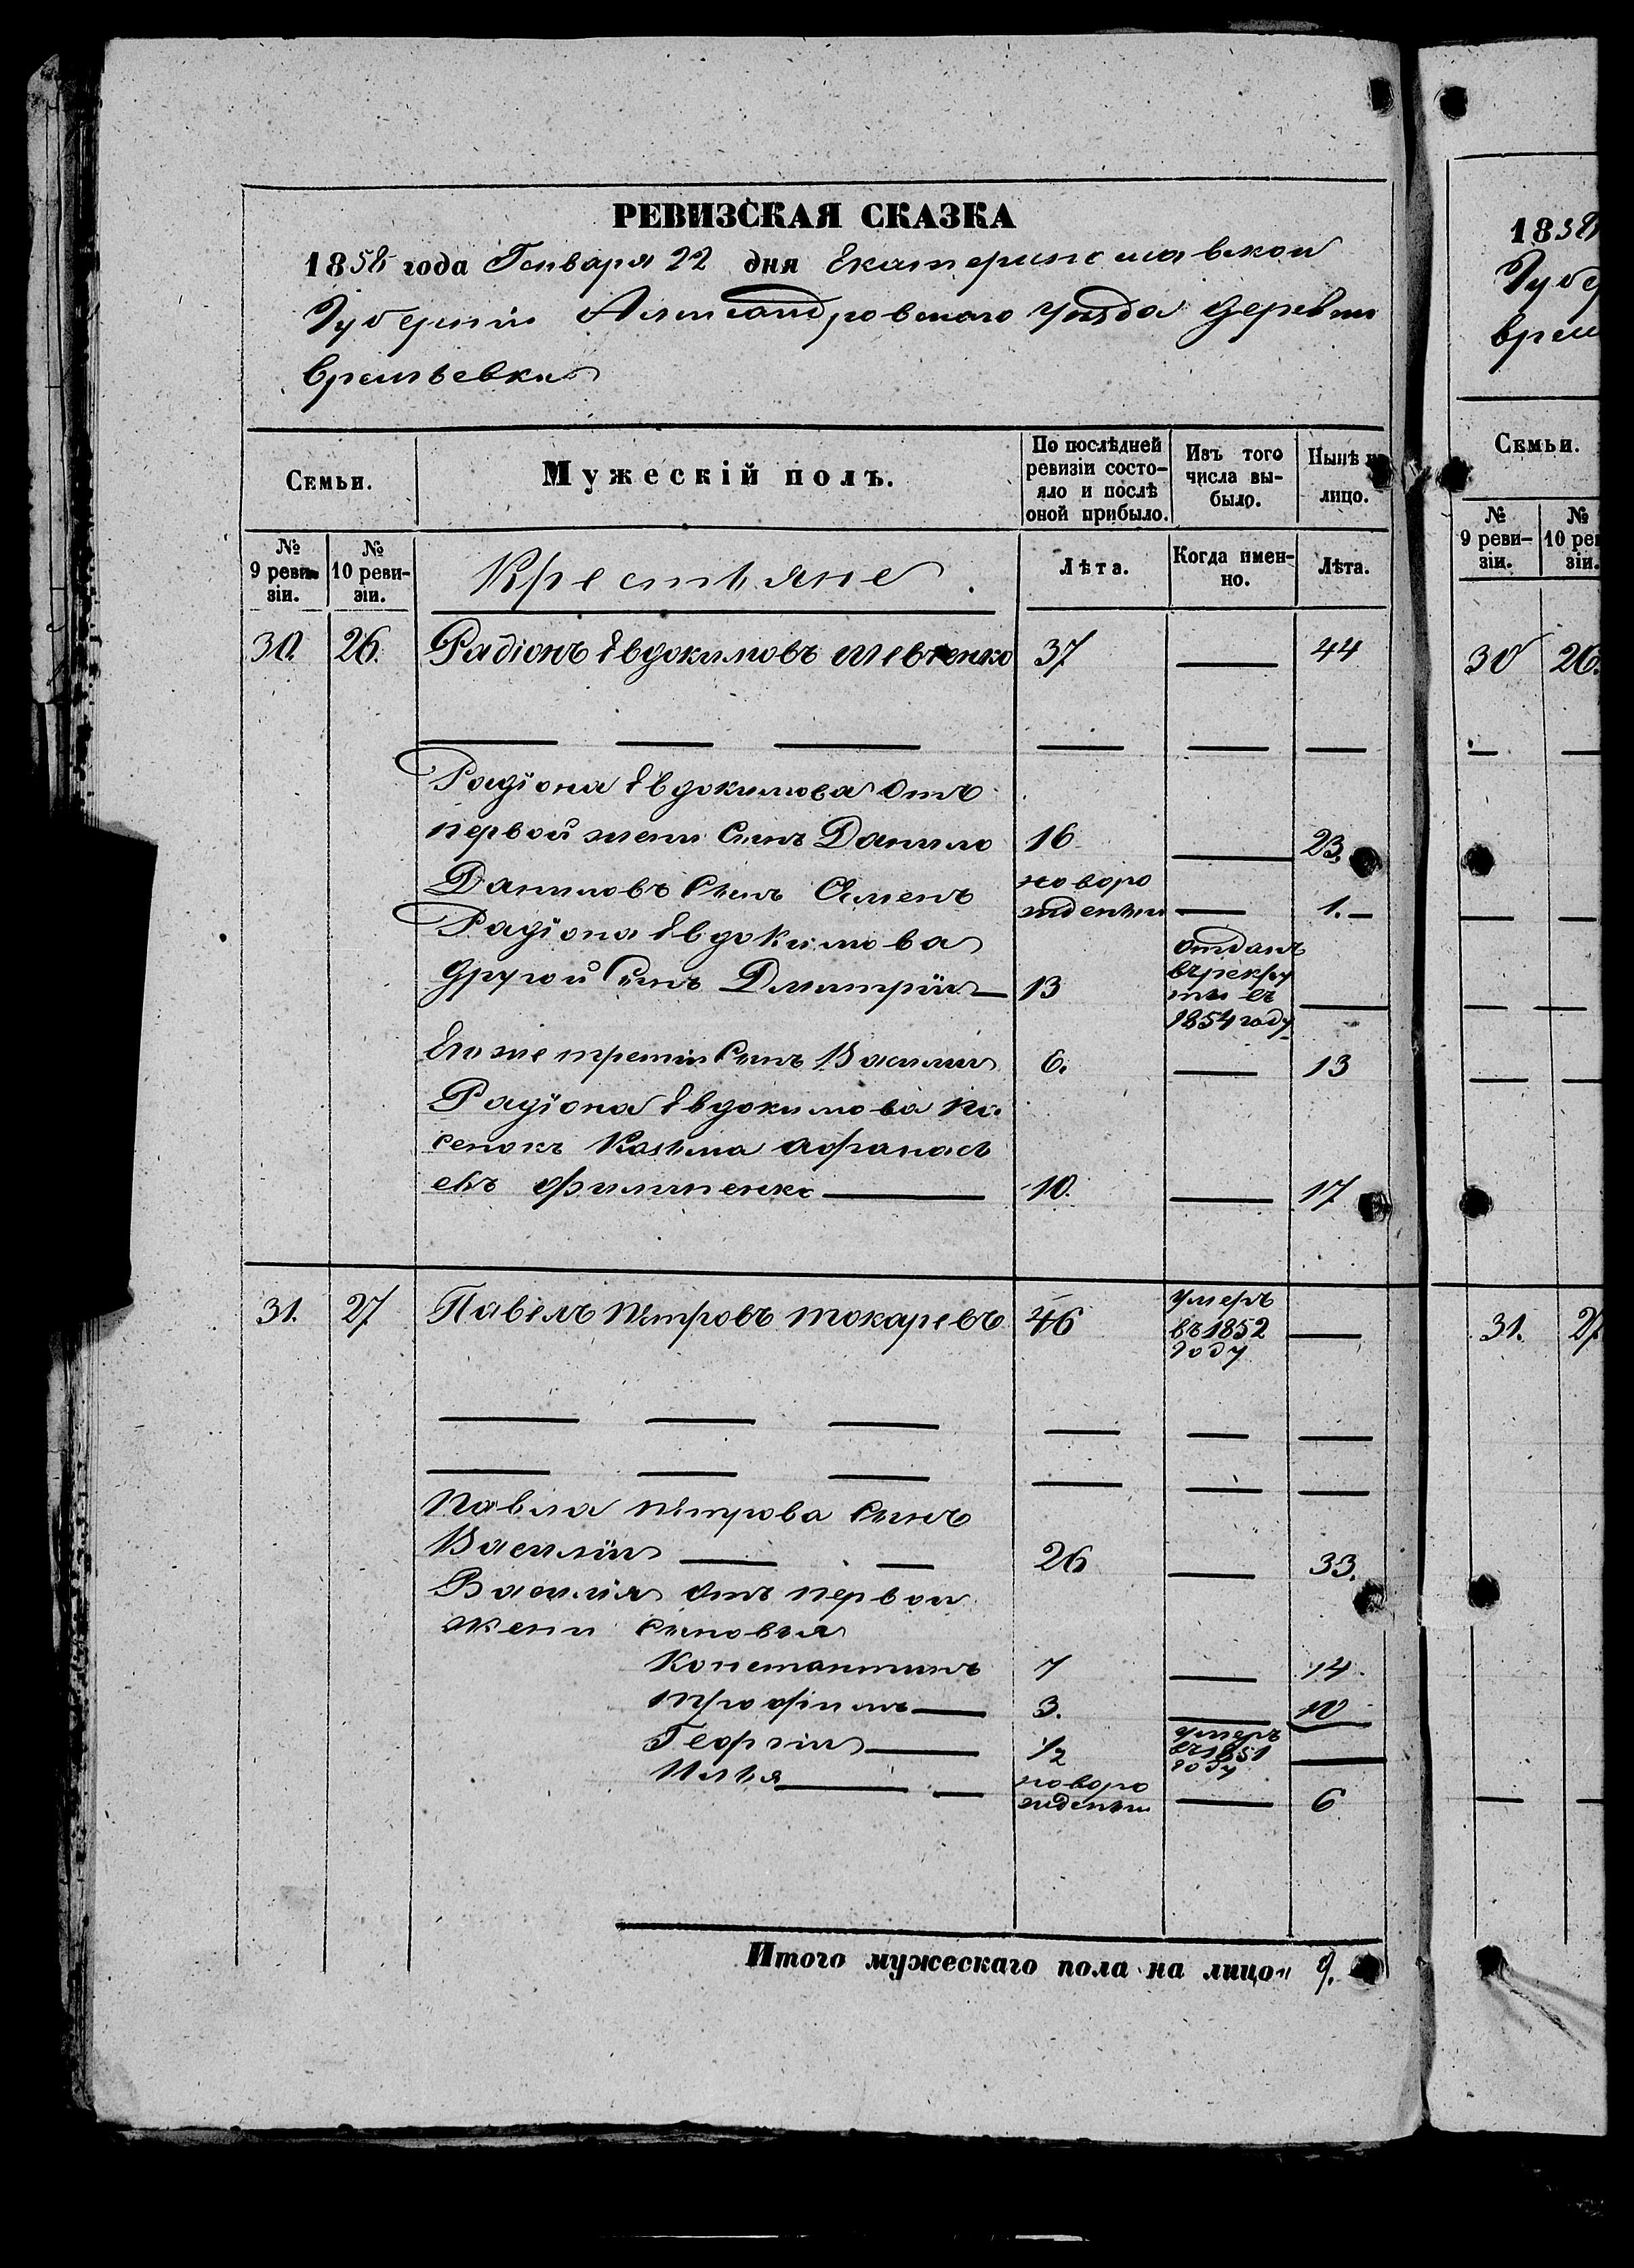 РЕВИЗСКАЯ СКАЗКА
1858 года Генваря 22 дня Екатеринославской
Губерніи Александровскаго уѣзда деревни
Времьевки
Семьи.
Мужескій полъ.
По послѣдней ревизіи состо-
яло и послѣ оной прибыло.
Изъ того числа вы-
было.
Нынѣ на лицо.
№ 9 реви-
зіи.
№ 10 реви-
зіи.
Крестьяне.
Лѣта.
Когда имен-
но.
Лѣта.
30. 26. Радіонъ Евдокимовъ Шевченко 37 — 44
Радіона Евдокимова отъ
первой жены Сынъ Данило 16 — 23.
Даниловъ Сынъ Семенъ новоро
жденный — 1. —
Радіона Евдокимова
другой Сынъ Дмитрій — 13 отданъ
въ рекру
ты въ
1854 году —
Его же третій Сынъ Василій 6. — 13
Радіона Евдокимова па
сенокъ Козьма Афанасі
евъ Филипенко — 10. — 17
31. 27 Павелъ Петровъ Токаревъ 46 умеръ
въ 1852
году —
Павла Петрова Сынъ
Василій — — 26 — 33.
Василія отъ первой
жены Сыновья
Константинъ 7 — 14
Трофимъ — 3. — 10
Георгій — 1/2 умеръ
въ 1851
году —
Илья — — новоро
жденный — 6
Итого мужескаго пола на лицо " 9.
1858
Губе
Врем
Семьи.
№ 9 реви-
зіи.
№ 10 рев
зіи.
30 26.
31. 27